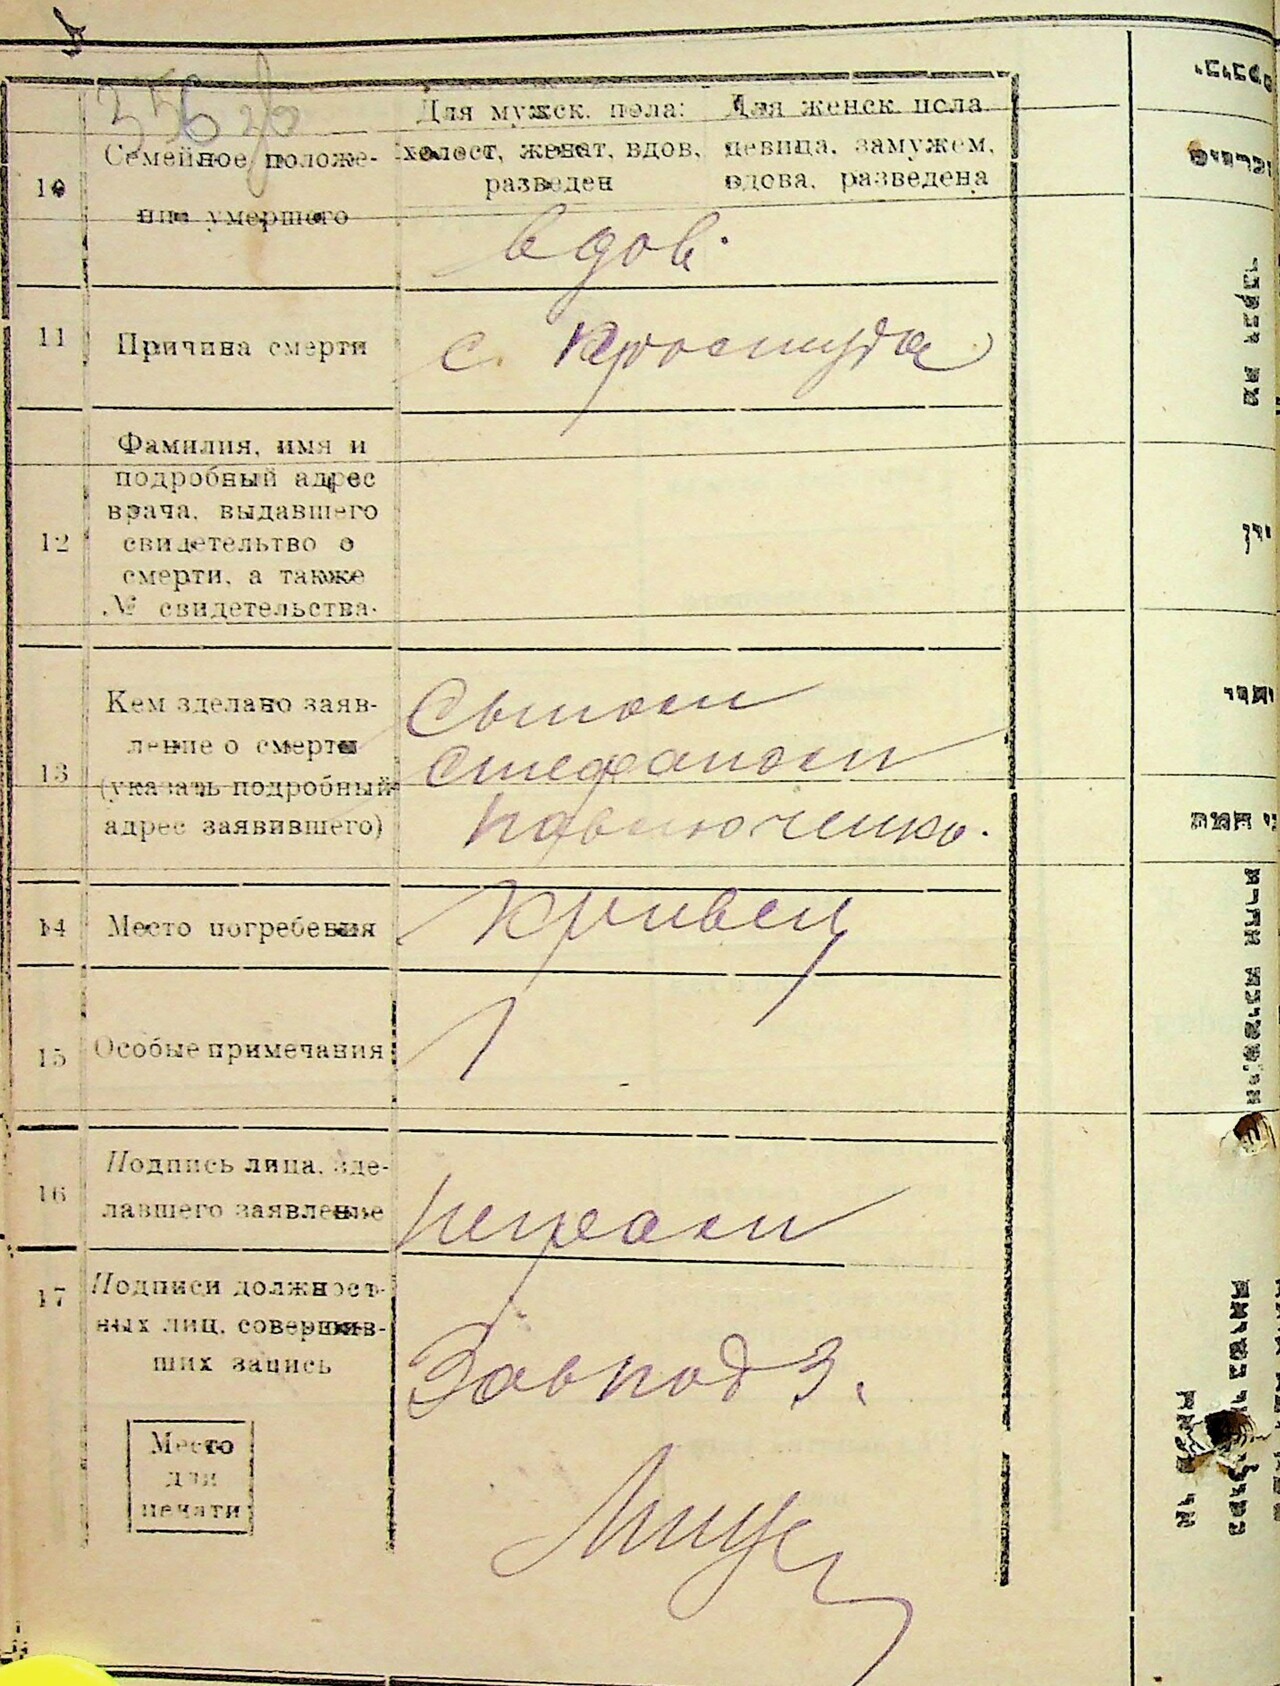 Для мужск. пола: Для женск пола
10 Семейное положе- холост, женат, вдов, девица, замужем,
разведен вдова, разведена
ние умершего
вдов.
11 Причина смерти с. простуда
Фамилия, имя и
подробный адрес
врача, выдавшего
12 свидетельство о
смерти, а также
№ свидетельства.
Кем зделано заяв- Сыном
ление о смерти Стефаном
13 (указать подробный
адрес заявившего) Павлюченко.
14 Место погребения Кривец
15 Особые примечания
Подпись лица, зде-
16 лавшего заявление
17 Подписи должност-
ных лиц, совершив-
ших запись
Завпод З.
Место
для
печати